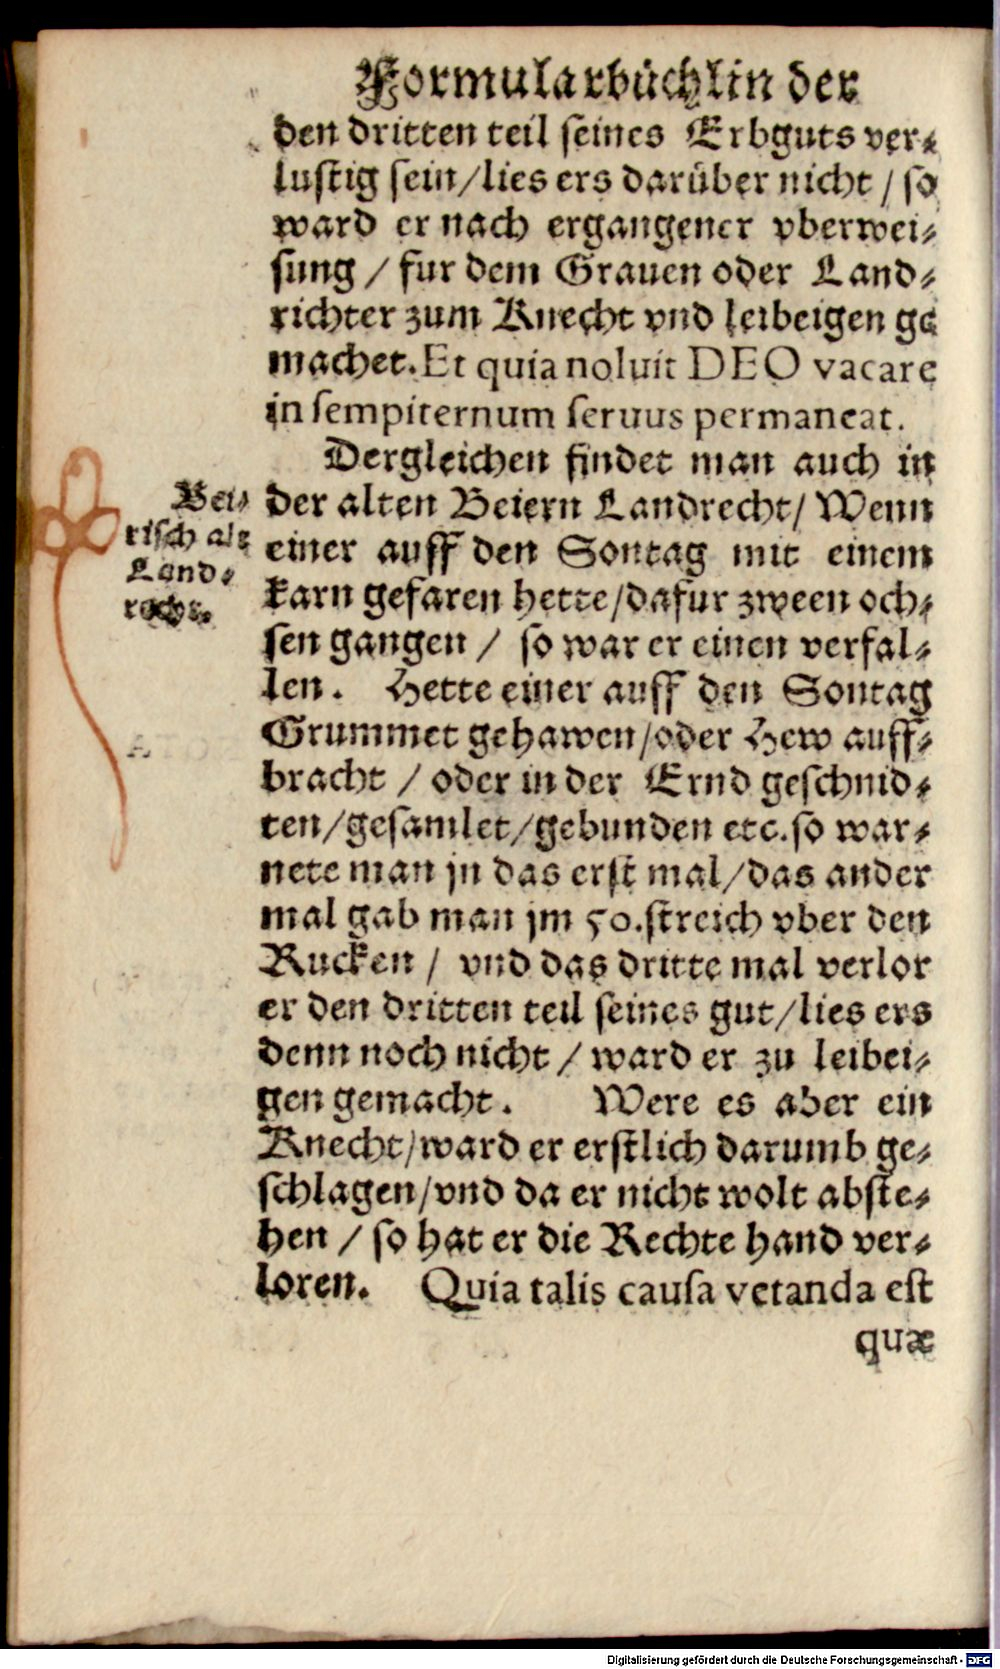 Formularbüchlin der
den dritten teil seines Erbguts ver⸗
lustig sein/lies ers darüber nicht / so
ward er nach ergangener vberwei⸗
sung / fur dem Grauen oder Land⸗
richter zum Knecht vnd leibeigen ge
machet. Et quia noluit DEO vacare
in sempiternum seruus permaneat.
Dergleichen findet man auch in
der alten Beiern Landrecht/ Wenn
einer auff den Sontag mit einem
karn gefaren hette/dafur zween och⸗
sen gangen / so war er einen verfal⸗
len. Hette einer auff den Sontag
Grummet gehawen/oder Hew auff⸗
bracht / oder in der Ernd geschnid⸗
ten/gesamlet/gebunden etc. so war⸗
nete man jn das erst mal/das ander
mal gab man jm 50. streich vber den
Rucken / vnd das dritte mal verlor
er den dritten teil seines gut/lies ers
denn noch nicht / ward er zu leibei⸗
gen gemacht. Were es aber ein
Knecht/ward er erstlich darumb ge⸗
schlagen/vnd da er nicht wolt abste⸗
hen / so hat er die Rechte hand ver⸗
loren. Quia talis causa vetanda est
quæ
Bei⸗
risch alt
Land⸗
recht.
Digitalisierung gefördert durch die Deutsche Forschungsgemeinschaft - DFG